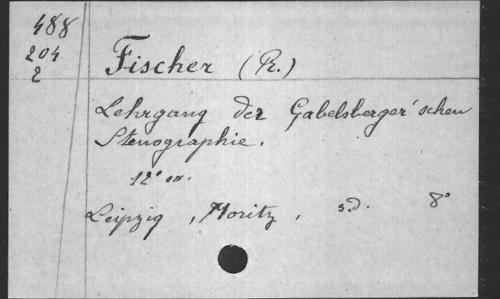 488
204
2
Fischer (R.)
Lehrgang der Gabelsberger'schen
Stenographie.
12º
Leipzig, Moritz, s.d. 8º